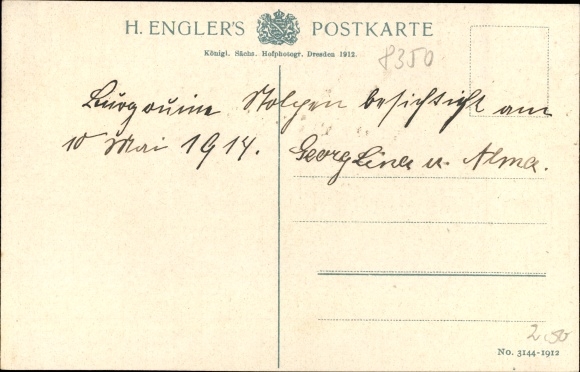 H. ENGLER'S POSTKARTE
Königl. Sächs. Hofphotogr. Dresden 1912.
8350
Burgruine Stolpen besichtigt am
10 Mai 1914. Georg Lina u. Alma.
2.50
No. 3144-1912